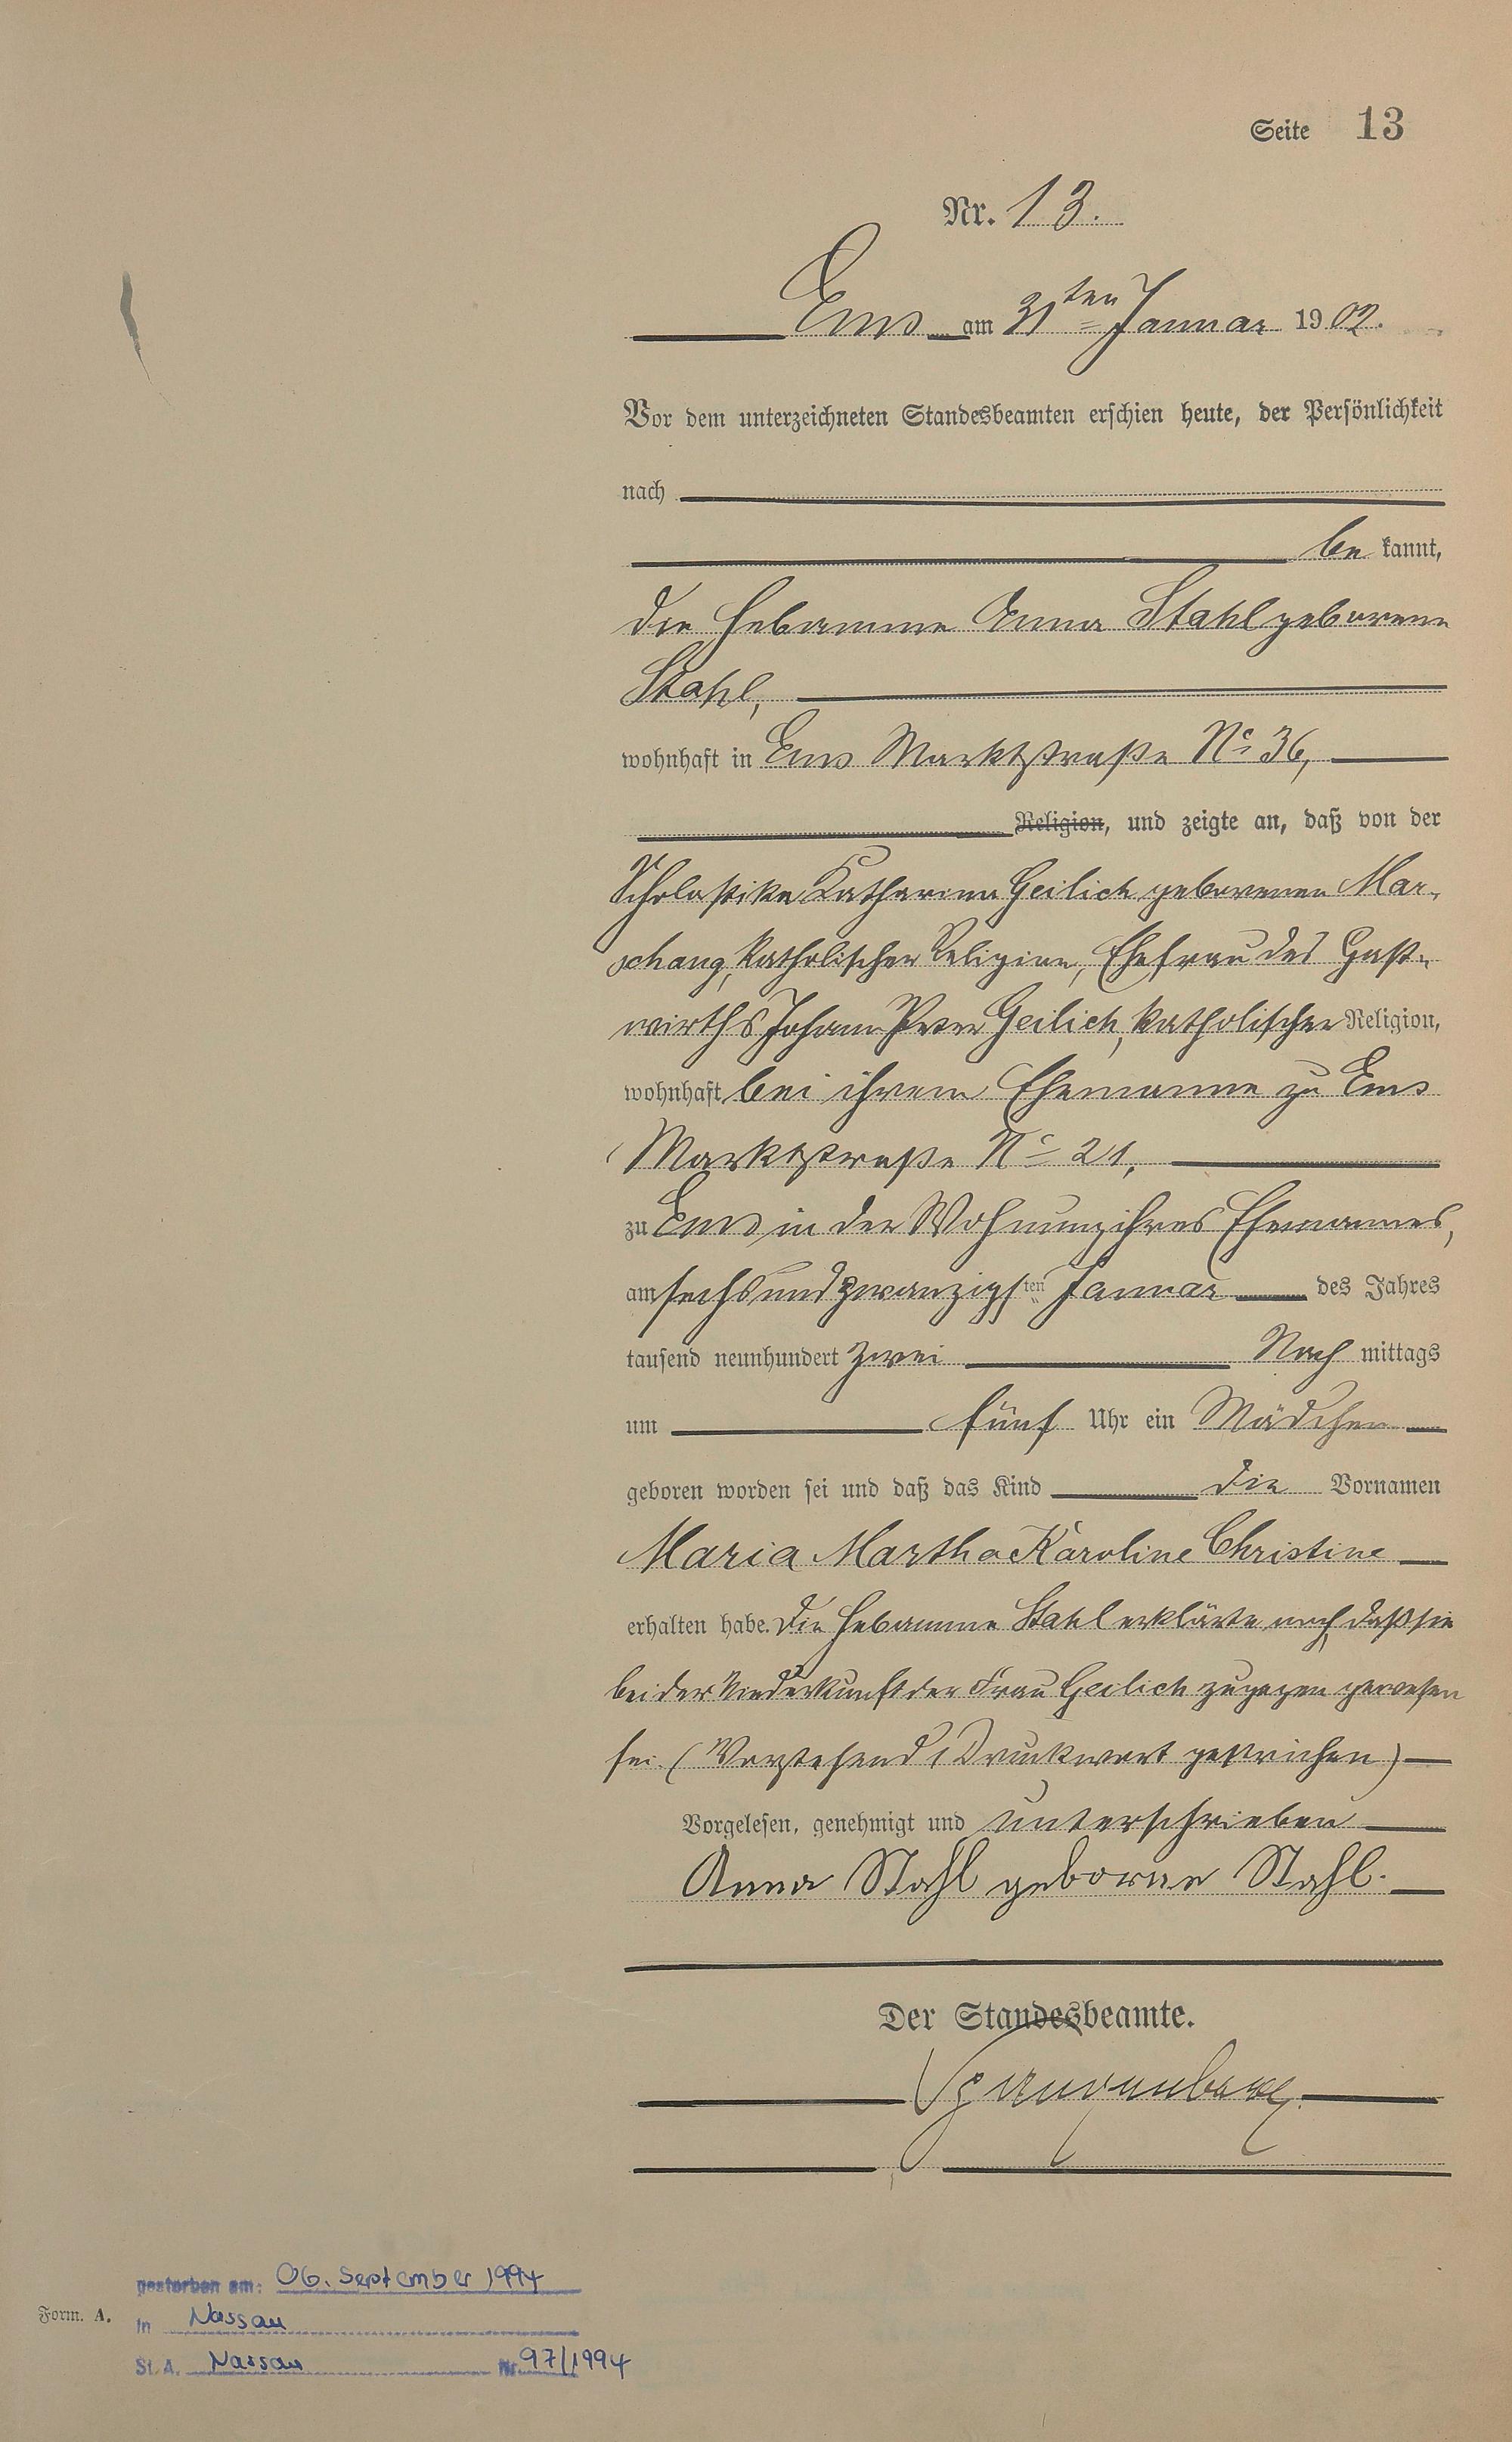 Seite 13
Nr. 13.
Ems am 31ten Januar 1902.
Vor dem unterzeichneten Standesbeamten erschien heute, der Persönlichkeit
nach
be kannt,
die Hebamme Anna Stahl geborene
Stahl,
wohnhaft in Ems Marktstraße No 36,
Religion, und zeigte an, daß von der
Scholastika Katharina Geilich geborenen Mar-
schang, katholischer Religion, Ehefrau des Gast-
wirths Johann Peter Geilich, katholischer Religion,
wohnhaft bei ihrem Ehemanne zu Ems
Marktstraße No 21,
zu Ems in der Wohnung ihres Ehemannes,
am sechsundzwanzigsten Januar des Jahres
tausend neunhundert zwei Nach mittags
um fünf Uhr ein Mädchen
geboren worden sei und daß das Kind die Vornamen
Maria Martha Karoline Christine
erhalten habe. Die Hebamme Stahl erklärte noch, daß sie
bei der Niederkunft der Frau Geilich zugegen gewesen
sei. (Vorstehend 1 Druckwort gestrichen)
Vorgelesen, genehmigt und unterschrieben
Anna Stahl geborne Stahl.
Der Standesbeamte.
Spangenberg
gestorben am: 06. September 1994
Form. A.
in Nassau
St. A. Nassau Nr. 97/1994